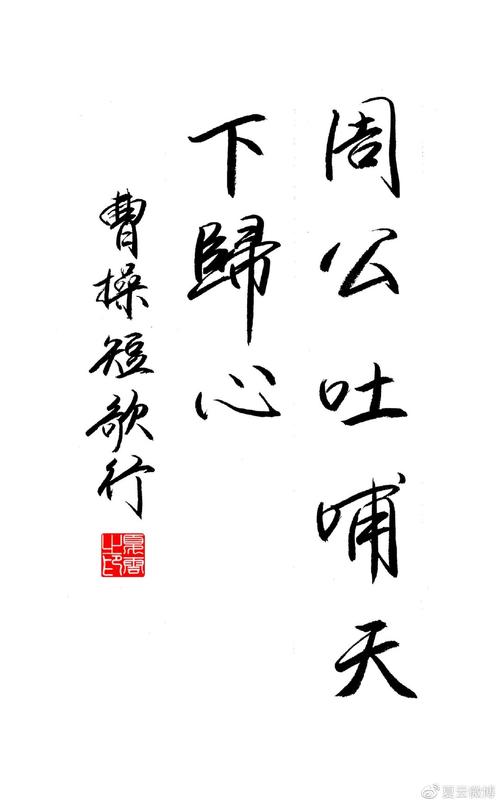 周公吐哺天
下歸心
曹操短歌行
夏雲之印
@夏云微博